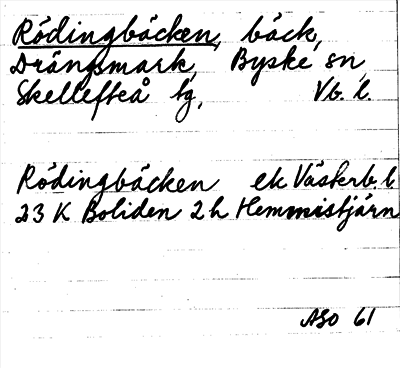 Rödingbäcken, bäck,
Drängsmark, Byske sn,
Skellefteå tg, Vb. l.
Rödingbäcken ek Västerb. l
23 K Boliden 2 h Hemmistjärn
ASO 61